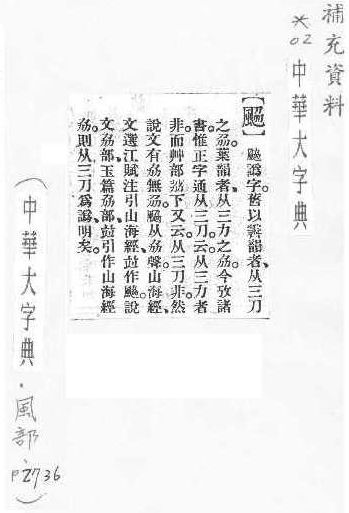 補充資料
※02 中華大字典
譌字。舊以霽韻者、从三刀
之刕。葉韻者、从三力之劦。今攷諸
書、惟正字通从三刀。云从三力者
非。而艸部荔下又云。从三刀非。然
說文有劦無刕。从劦聲。山海經、
文選江賦注引山海經、竝作。說
文劦部、玉篇劦部、竝引作山海經
劦。則从三刀爲譌明矣。
(中華大字典．風部、P2736)